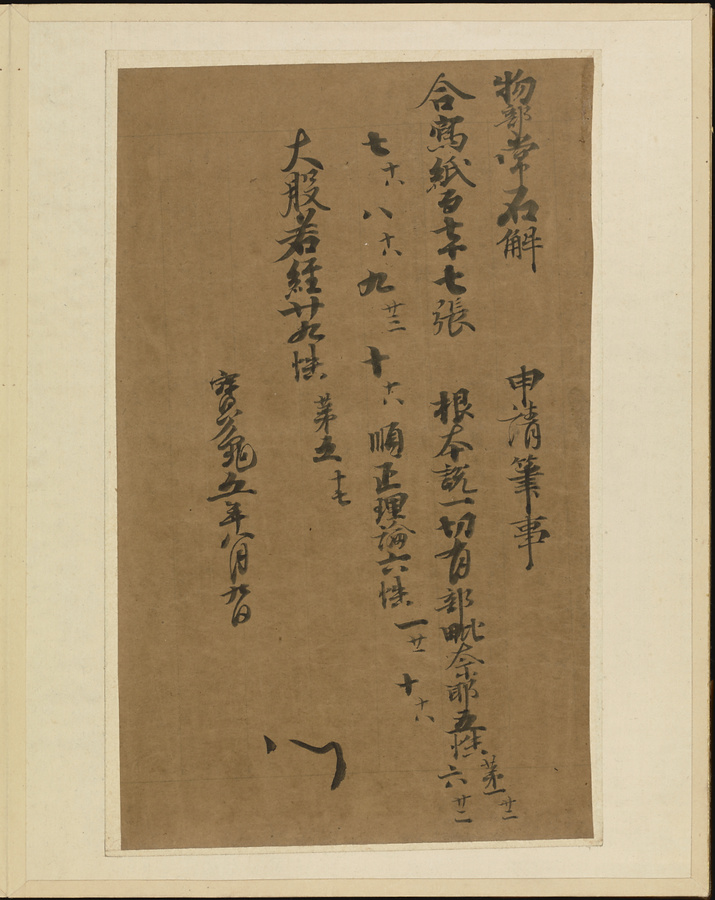 物部常石解 申請筆事
合寫紙百七十七張 根本説一切有部毗奈耶五帙 第一 廿二 六 廿二
七 十六 八 十六 九 廿三 十 十六 順正理論六帙 一 廿一 十 十六
大般若經廿九帙 第五 十七
寶龜五年八月九日